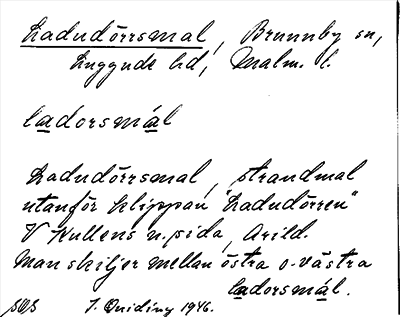 Ladudörrsmal, Brunnby sn,
Luggude hd, Malm. l.
ladorsmál
Ladudörrsmal, strandmal
utanför klippan "Ladudörren"
V Kullens n. sida, Arild.
Man skiljer mellan östra o. västra
ladorsmál.
1946.